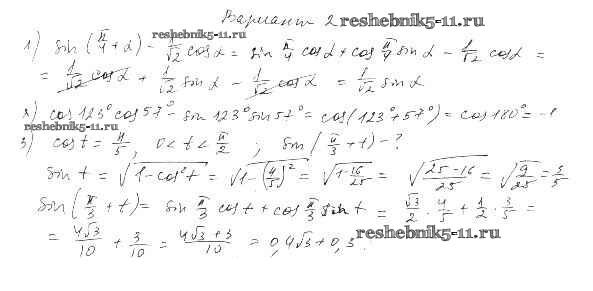 Вариант 2 reshebnik5-11.ru
reshebnik5-11.ru
1) sin(π/4 + α) - 1/√2 cos α = sin π/4 cos α + cos π/4 sin α - 1/√2 cos α =
= 1/√2 cos α + 1/√2 sin α - 1/√2 cos α = 1/√2 sin α
2) cos 123° cos 57° - sin 123° sin 57° = cos(123° + 57°) = cos 180° = -1
reshebnik5-11.ru
3) cos t = 4/5, 0 < t < π/2, sin(π/3 + t) - ?
sin t = √(1 - cos² t) = √(1 - (4/5)²) = √(1 - 16/25) = √((25 - 16)/25) = √(9/25) = 3/5
sin(π/3 + t) = sin π/3 cos t + cos π/3 sin t = √3/2 · 4/5 + 1/2 · 3/5 =
= 4√3/10 + 3/10 = (4√3 + 3)/10 = 0,4√3 + 0,3.
reshebnik5-11.ru